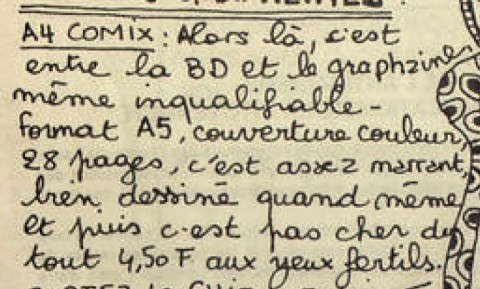 A4 COMIX : Alors là, c'est
entre la BD et le graphzine
même inqualifiable -
format A5, couverture couleur,
28 pages, c'est assez marrant,
bien dessiné quand même
et puis c'est pas cher du
tout 4,50 F aux yeux fertils.